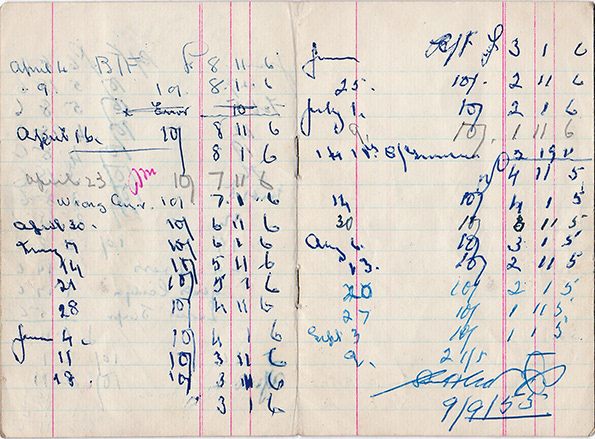 April 4 B/F £ 8 11 6
" 9. 10/. 8. 1. 6
x Error 10
April 16. 10/ 8 11 6
8 1 6
April 23 10/ 7 11 6
Wrong 10/ 7. 1. 6
April 30. 10/ 6 11 6
7 10/ 6 1 6
14 10/ 5 11 6
21 10/ 5 1 6
28 10/ 4 11 6
June 4. 10/ 4 1 6
11 10/ 3 11 6
18. 10/ 3 11 6
3 1 6
June B/F £ 3 1 6
25. 10/. 2 11 6
July 1. 10/ 2 1 6
9. 10/. 1 11 6
2 19 11
4 11 5
14 10/ 4 1 5
30 10/ 3 11 5
Aug 6. 10/ 3 1 5
13. 10/ 2 11 5
20 10/ 2 1 5
27 10/ 1 11 5
Sept 3 10/ 1 1 5
9. 21/5
9/9/55